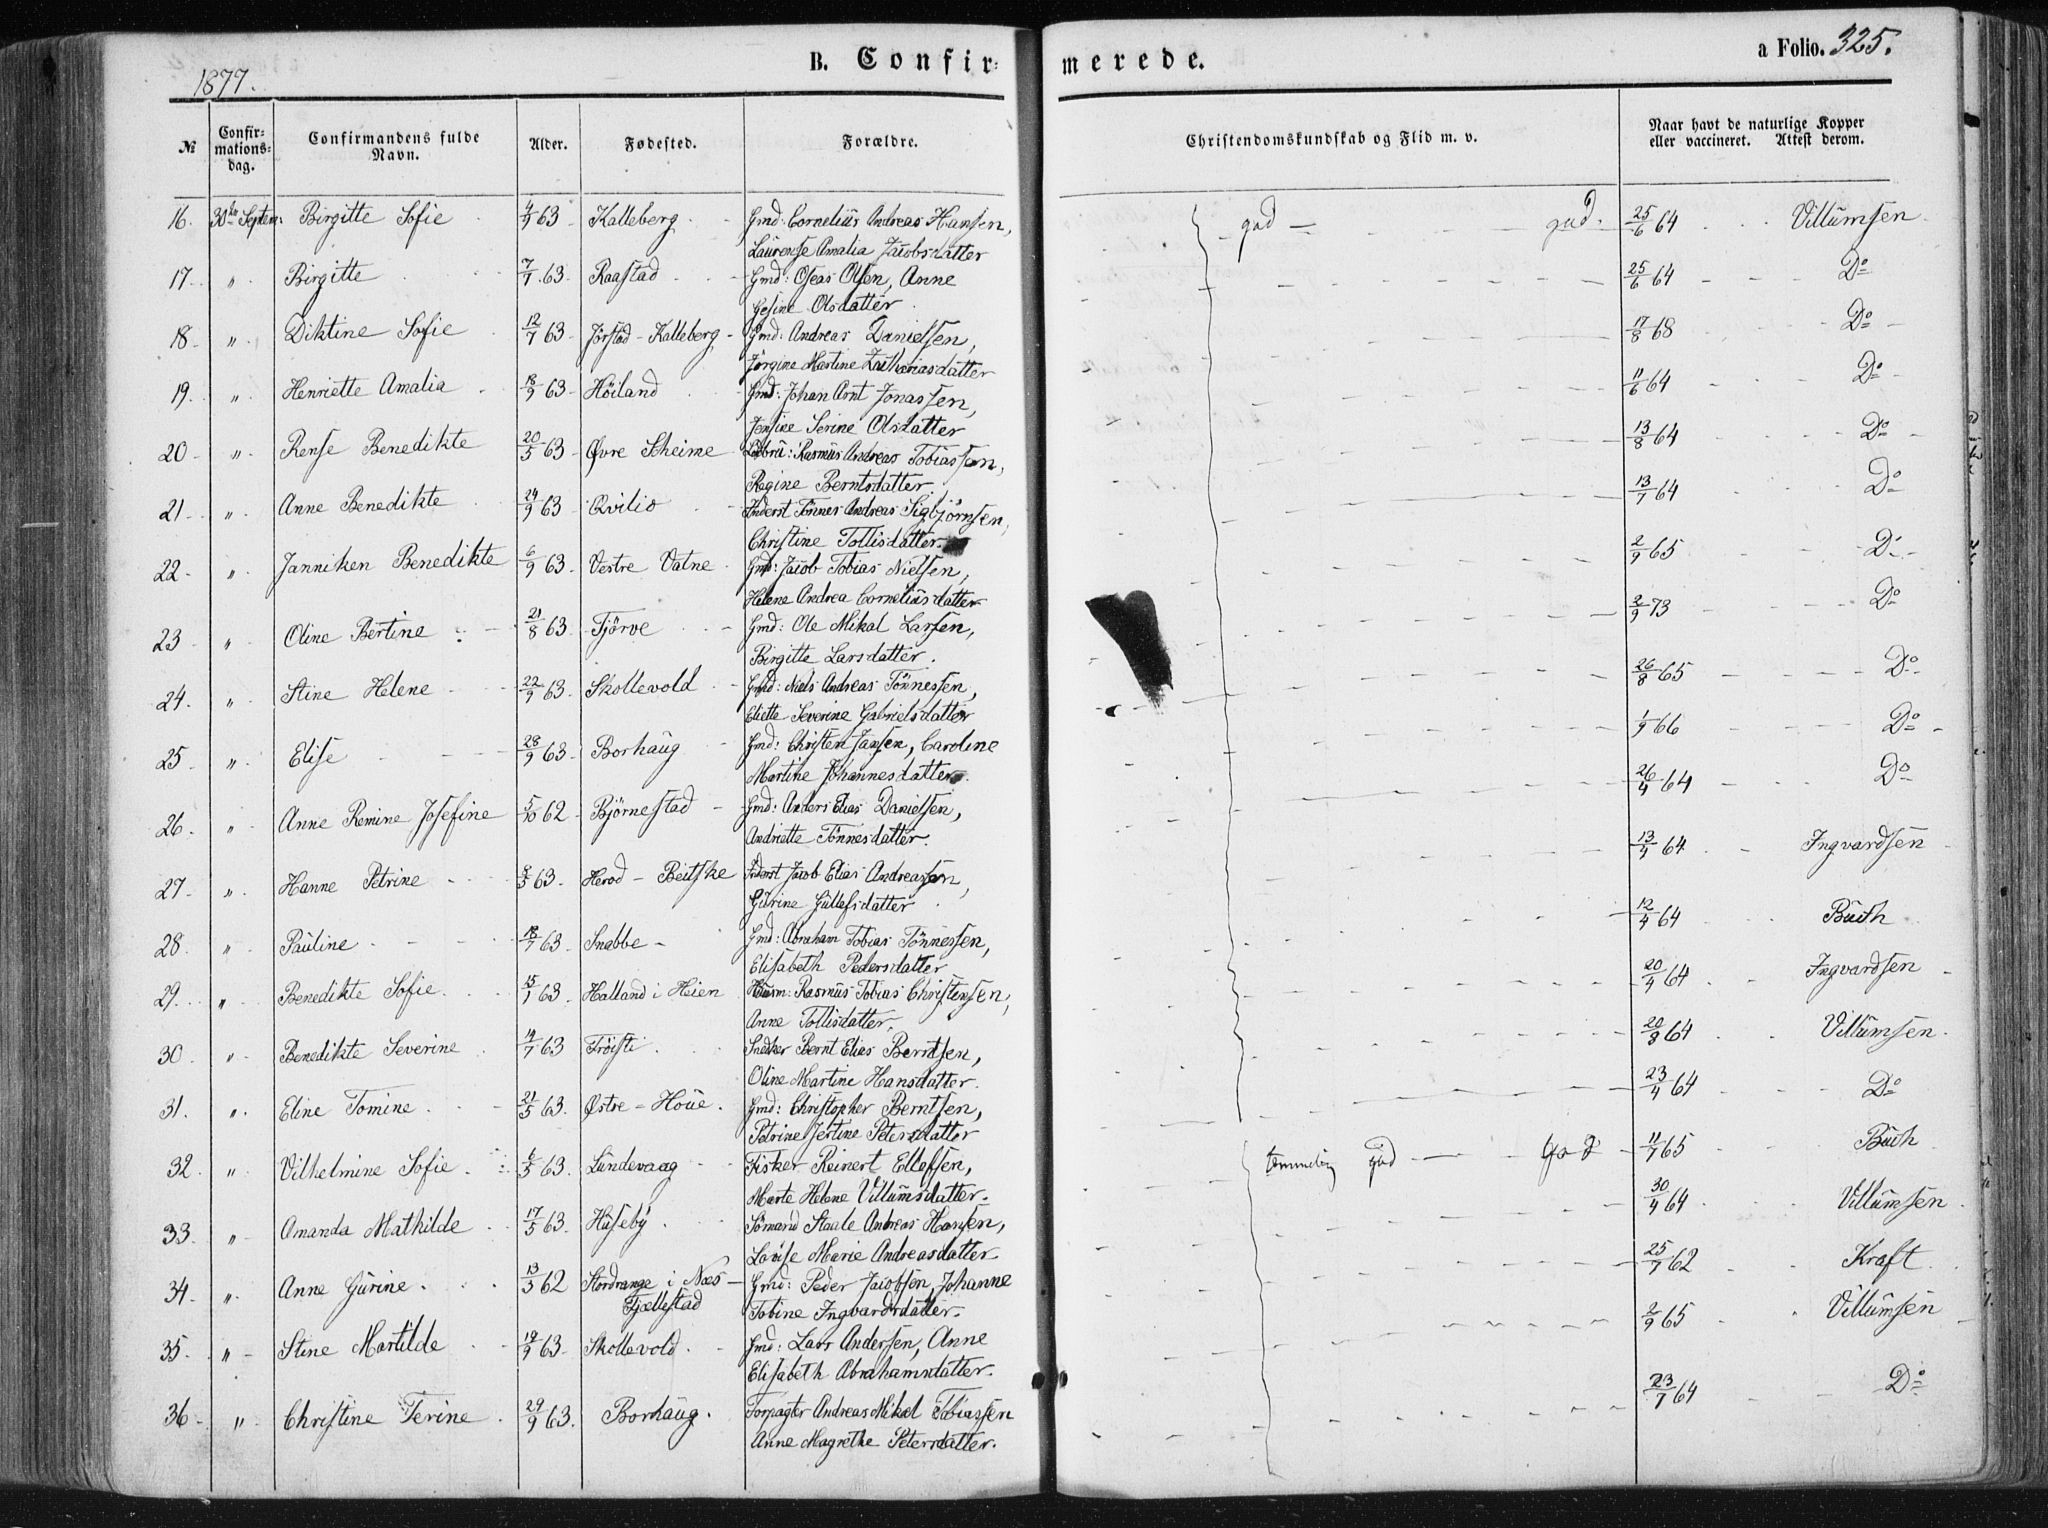 1877.
B. Confir-
merede.
a Folio. 325.
№
Confir-
mations-
dag.
Confirmandens fulde
Navn.
Alder.
Fødested.
Forældre.
Christendomskundskab og Flid m. v.
Naar havt de naturlige Kopper
eller vaccineret. Attest derom.
16. 30te Septem: Birgitte Sofie 4/9 63 Kalleberg. Gmd: Cornelius Andreas Hansen, god god. 25/6 64 Villumsen
Laurense Amalia Jacobsdatter
17 " Birgitte 7/7 63 Raastad Gmd: Oseas Olsen, Anne 25/6 64 Do
Gesine Olsdatter
18 " Diktine Sofie 12/7 63 Jørstad-Kalleberg Gmd: Andreas Danielsen, 17/8 68 Do
Jørgine Martine Zakariasdatter
19. " Henriette Amalia 18/9 63 Høiland Gmd: Johan Arnt Jonassen, 11/6 64 Do
Jensine Serine Olsdatter
20 " Rense Benedikte 20/5 63 Øvre Skeime Rasmus Andreas Tobiassen, 13/8 64 Do
Regine Berntsdatter
21 " Anne Benedikte 24/9 63 Qvilio Inderst Tönnes Andreas Sigbjørnsen, 13/7 64 Do
Christine Tollisdatter.
22 " Janniken Benedikte 6/9 63 Vestre Vatne Gmd: Jacob Tobias Nielsen, 2/9 65 Do
Helene Andrea Corneliusdatter
23 " Oline Bertine 21/8 63 Tjörve Gmd: Ole Mikal Larsen, 2/9 73 Do
Birgitte Larsdatter.
24. " Stine Helene 22/9 63 Skollevold Gmd: Niels Andreas Tönnessen, 26/8 65 Do
Eliette Severine Gabrielsdatter
25 " Elise 28/9 63 Borhaug Gmd: Christen Jansen, Caroline 1/9 66 Do
Martine Johannesdatter.
26. " Anne Remine Josefine 5/10 62 Björnestad Gmd: Anders Elias Danielsen, 26/4 64 Do
Andriette Tönnesdatter.
27. " Hanne Petrine 63. Herod - Beitske Inderst Jacob Elias Andreassen, 13/4 64 Ingvardsen
Gurine Gullefsdatter
28. " Pauline 18/7 63. Snabbe Gmd: Abraham Tobias Tönnessen, 12/4 64 Buch
Elisabeth Pedersdatter
29. " Benedikte Sofie 15/1 63. Halland i Heien Husm: Rasmus Tobias Christensen, 20/4 64 Ingvardsen
Anne Tollisdatter.
30 " Benedikte Severine 14/7 63 Tröisti Snedker Bernt Elias Berntsen, 20/8 64 Villumsen
Oline Martine Hansdatter.
31. " Eline Tomine 21/5 63. Østre - Houe. Gmd: Christopher Berntsen, 23/4 64 Do
Petrine Jertine Petersdatter
32. " Vilhelmine Sofie 6/5 63. Lundevaag Fisker Reinert Ellefsen, temmelig god God 11/7 65 Buch
Marte Helene Villumsdatter.
33. " Amanda Mathilde 17/5 63. Huseby Sömand Staale Andreas Hansen, 30/4 64 Villumsen
Lovise Marie Andreasdatter
34 " Anne Gurine 13/5 62 Stordrange i Næs - Gmd: Peder Jacobsen, Johanne 25/7 62 Kraft
Fjellestad Tobine Ingvardsdatter.
35. " Stine Martilde 19/9 63 Skollevold Gmd: Lars Andersen, Anne 2/9 65 Villumsen
Elisabeth Abrahamsdatter.
36 " Christine Terine 29/9 63. Borhaug. Forpagter Andreas Mikal Tobiassen 23/7 64 Do
Anne Magrethe Petersdatter.